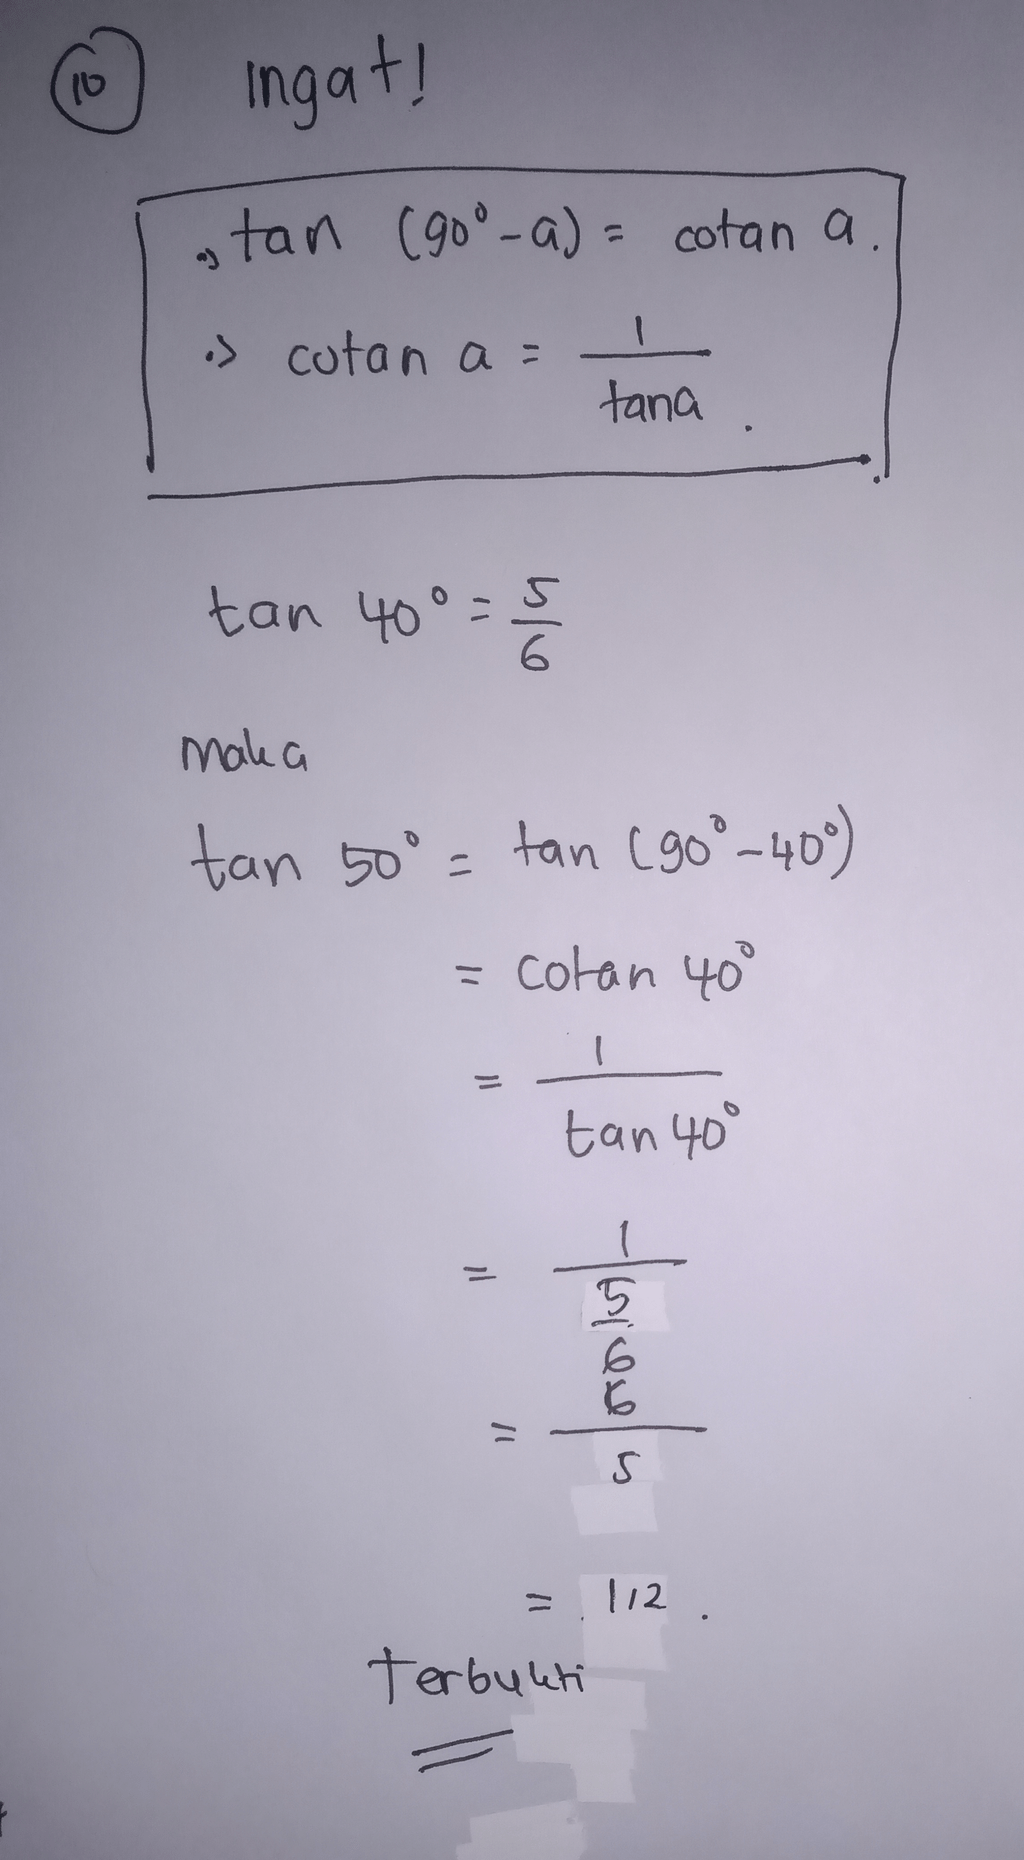 10 Ingat!
•) tan (90° - a) = cotan a.
•> cotan a = 1/tan a.
tan 40° = 5/6
maka
tan 50° = tan (90° - 40°)
= cotan 40°
= 1/tan 40°
= 1/(5/6)
= 6/5
= 1,2.
Terbukti